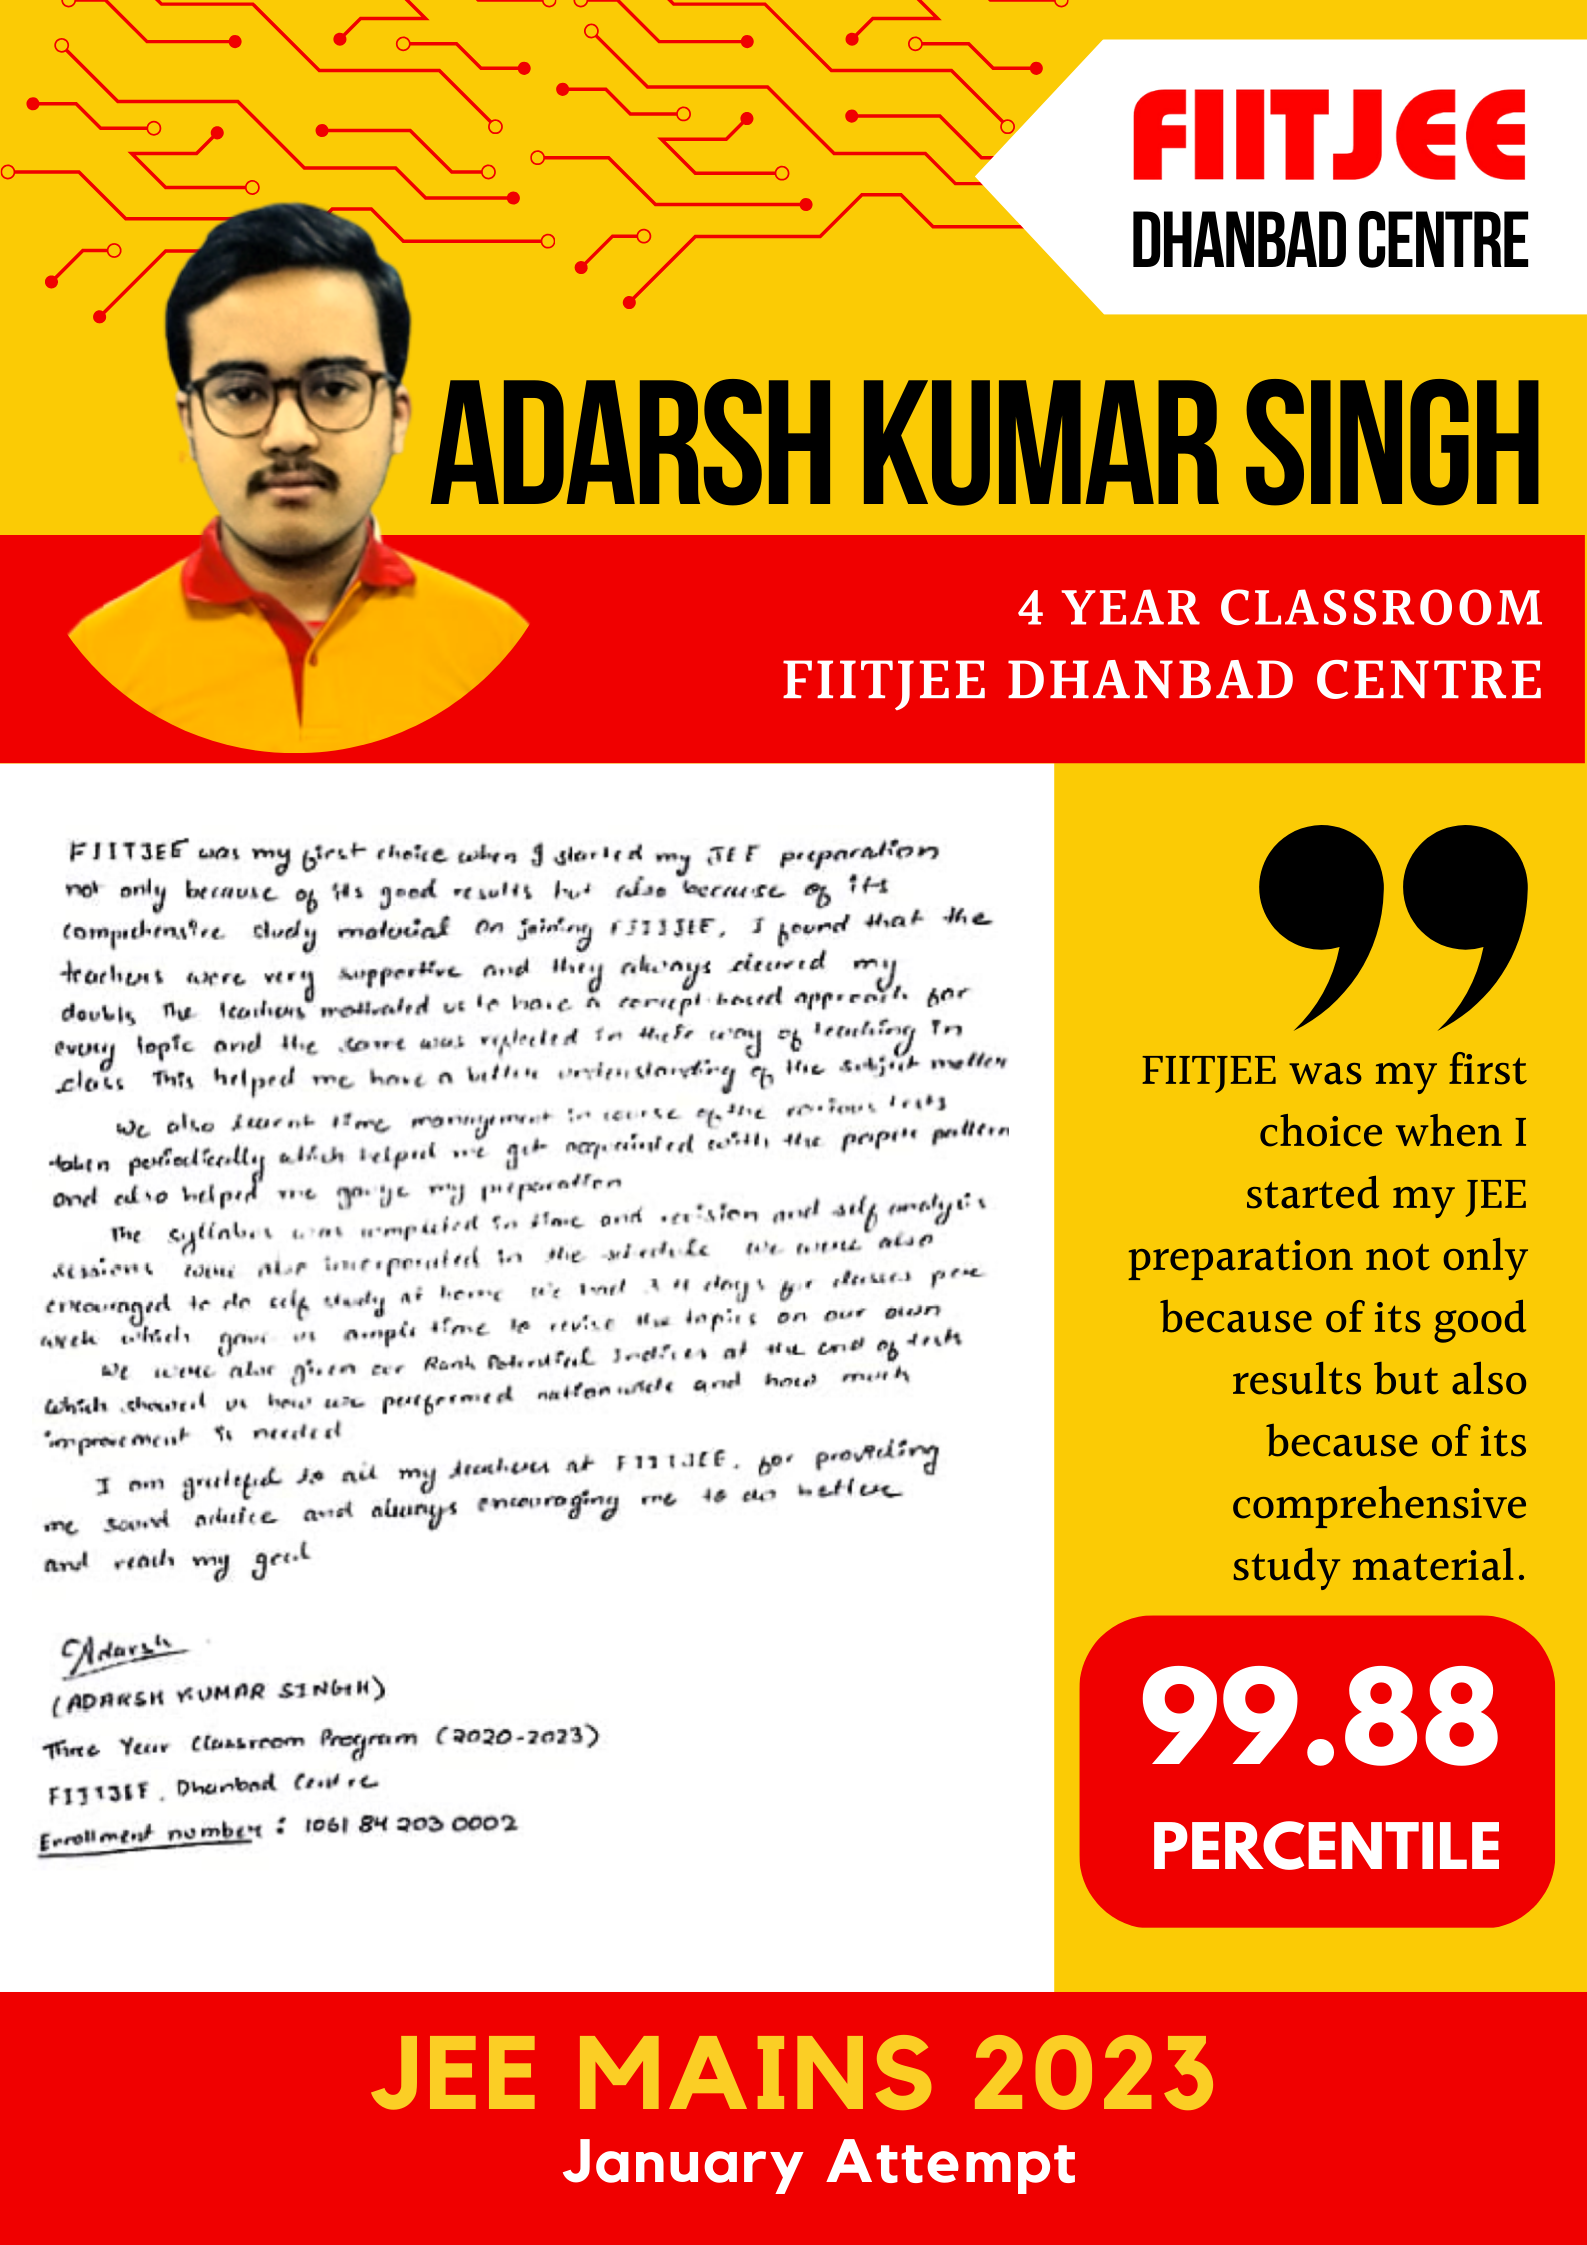 FIITJEE
DHANBAD CENTRE
ADARSH KUMAR SINGH
4 YEAR CLASSROOM
FIITJEE DHANBAD CENTRE
FIITJEE was my first choice when I started my JEE preparation
not only because of its good results but also because of its
comprehensive study material On joining FIITJEE, I found that the
teachers were very supportive and they always cleared my
doubts The teachers motivated us to have a concept-based approach for
every topic and the same was reflected in their way of teaching In
class This helped me have a better understanding of the subject matter
We also learnt time management in course of the various tests
taken periodically which helped me get acquainted with the paper pattern
and also helped me gauge my preparation
The syllabus was completed in time and revision and self analysis
sessions were also incorporated in the schedule We were also
encouraged to do self study at home We had 3-4 days for classes per
week which gave us ample time to revise the topics on our own
We were also given our Rank Potential Indices at the end of tests
which showed us how we performed nationwide and how much
improvement is needed
I am grateful to all my teachers at FIITJEE, for providing
me sound advice and always encouraging me to do better
and reach my goal
Adarsh
(ADARSH KUMAR SINGH)
Three Year Classroom Program (2020-2023)
FIITJEE, Dhanbad Centre
Enrollment number: 1061 84 203 0002
FIITJEE was my first
choice when I
started my JEE
preparation not only
because of its good
results but also
because of its
comprehensive
study material.
99.88
PERCENTILE
JEE MAINS 2023
January Attempt